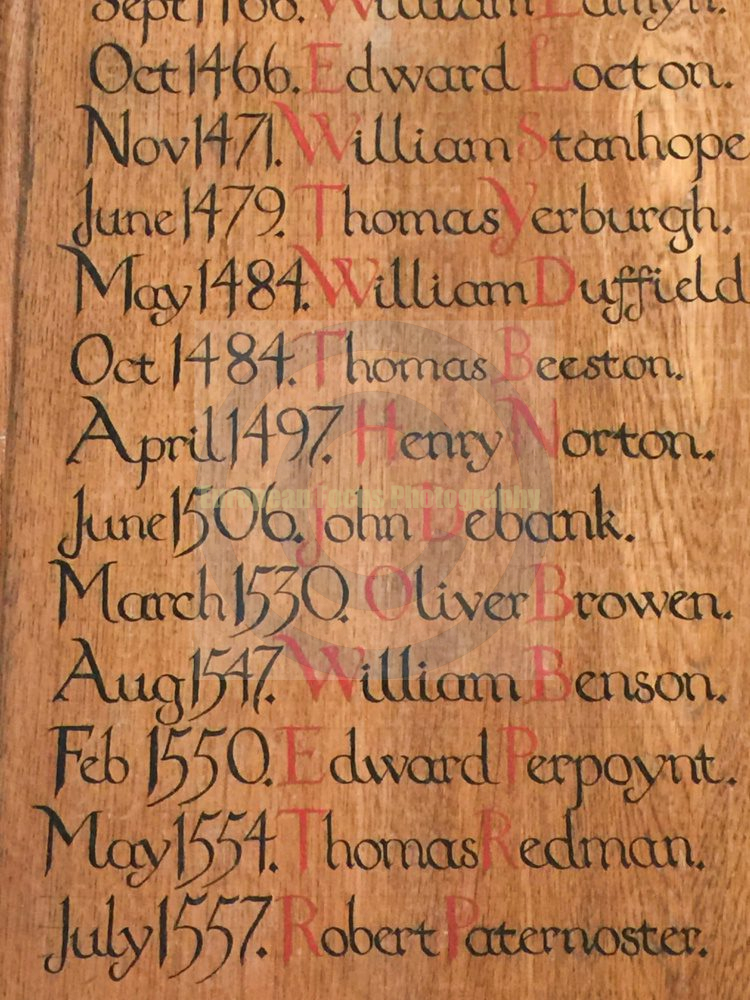 Sept 1466. William
Oct 1466. Edward Locton.
Nov 1471. William Stanhope
June 1479. Thomas Yerburgh.
May 1484. William Duffield
Oct 1484. Thomas Beeston.
April 1497. Henry Norton.
European Focus Photography
June 1506. John Debank.
March 1530. Oliver Browen.
Aug 1547. William Benson.
Feb 1550. Edward Perpoynt.
May 1554. Thomas Redman.
July 1557. Robert Paternoster.